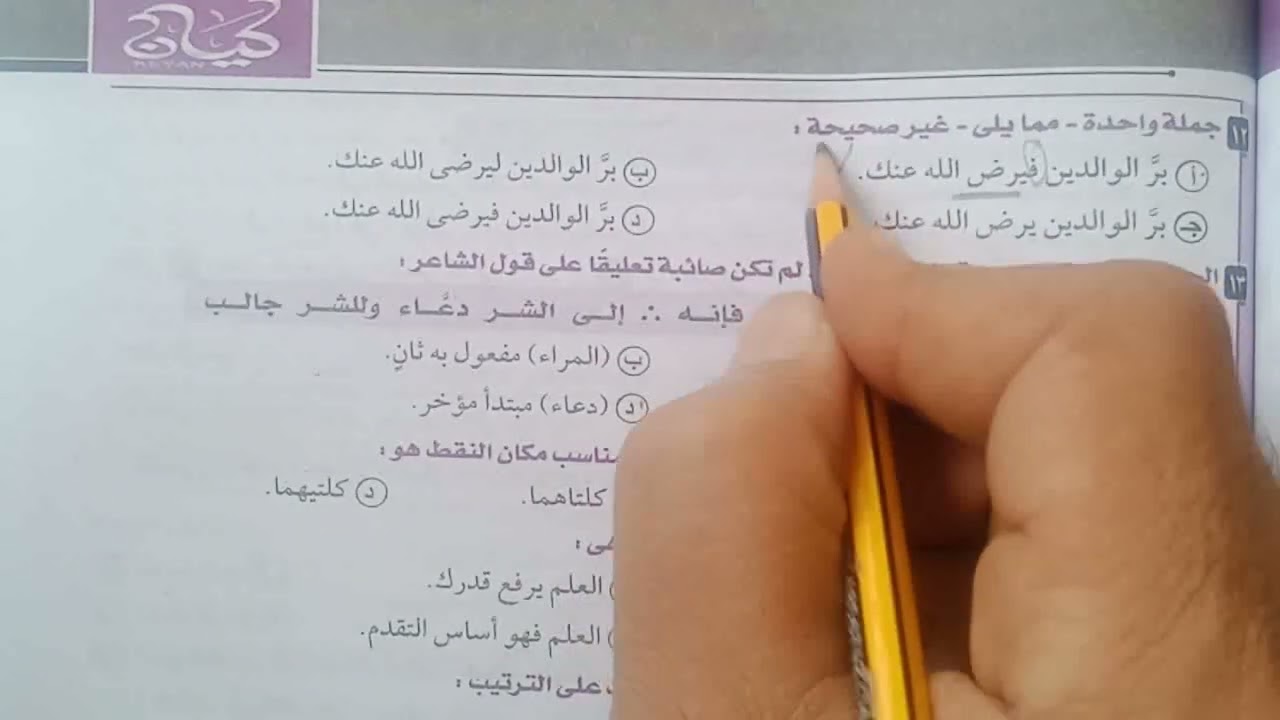 كيان
KEYAN
١٢ جملة واحدة - مما يلى - غير صحيحة :
أ برَّ الوالدين فيرض الله عنك.
ب برَّ الوالدين ليرضى الله عنك.
جـ برَّ الوالدين يرض الله عنك.
د برَّ الوالدين فيرضى الله عنك.
١٣ لم تكن صائبة تعليقًا على قول الشاعر :
فإنه ∴ إلى الشر دعَّاء وللشر جالب
ب (المراء) مفعول به ثانٍ.
د (دعاء) مبتدأ مؤخر.
مكان النقط هو :
كلتاهما.
د كلتيهما.
العلم يرفع قدرك.
العلم فهو أساس التقدم.
على الترتيب :